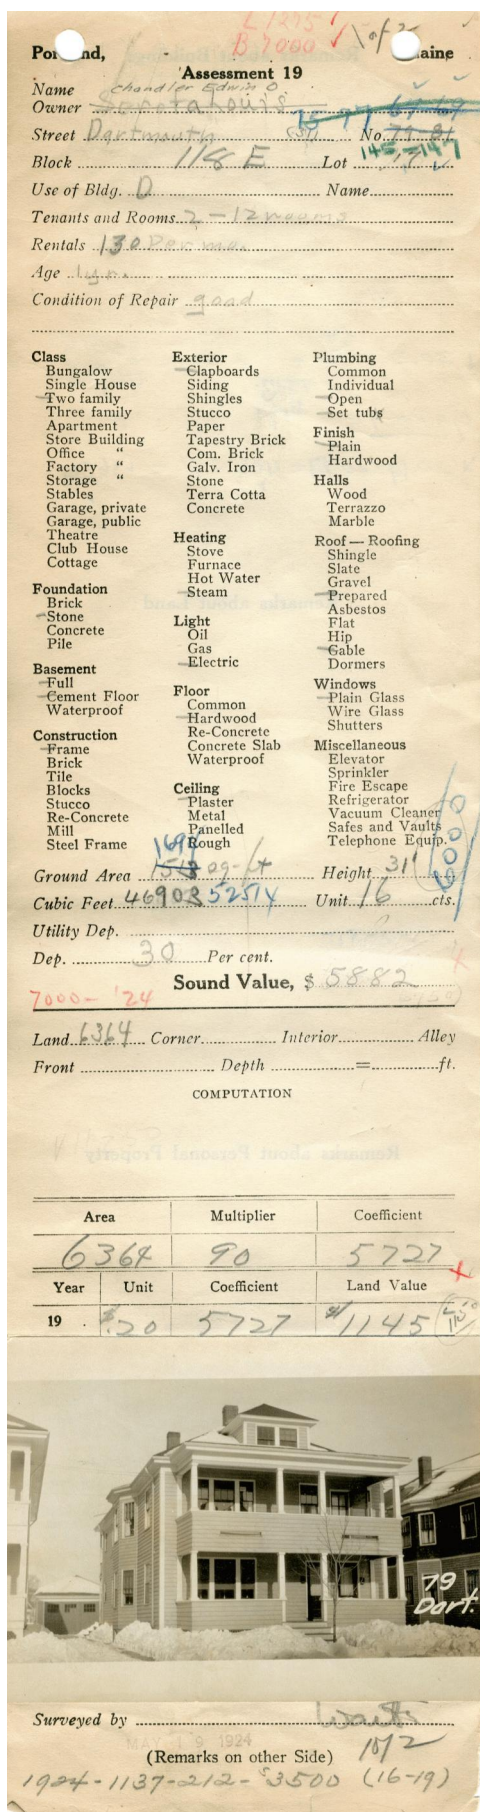 L 1275
B 7000 1 of 2
Portland, Maine
Assessment 19
Name Chandler Edwin O.
Owner
Street Dartmouth No. 79-81
Block 118 E Lot 17
145-147
Use of Bldg. D Name
Tenants and Rooms 2-12 rooms
Rentals 130 Per mo.
Age 1 yr.
Condition of Repair good
Class
Bungalow
Single House
Two family
Three family
Apartment
Store Building
Office "
Factory "
Storage "
Stables
Garage, private
Garage, public
Theatre
Club House
Cottage
Foundation
Brick
Stone
Concrete
Pile
Basement
Full
Cement Floor
Waterproof
Construction
Frame
Brick
Tile
Blocks
Stucco
Re-Concrete
Mill
Steel Frame
Exterior
Clapboards
Siding
Shingles
Stucco
Paper
Tapestry Brick
Com. Brick
Galv. Iron
Stone
Terra Cotta
Concrete
Heating
Stove
Furnace
Hot Water
Steam
Light
Oil
Gas
Electric
Floor
Common
Hardwood
Re-Concrete
Concrete Slab
Waterproof
Ceiling
Plaster
Metal
Panelled
Rough
Plumbing
Common
Individual
Open
Set tubs
Finish
Plain
Hardwood
Halls
Wood
Terrazzo
Marble
Roof — Roofing
Shingle
Slate
Gravel
Prepared
Asbestos
Flat
Hip
Gable
Dormers
Windows
Plain Glass
Wire Glass
Shutters
Miscellaneous
Elevator
Sprinkler
Fire Escape
Refrigerator
Vacuum Cleaner
Safes and Vaults
Telephone Equip.
6000
1694
Ground Area 1513 Height 31'
Cubic Feet 46903 52514 Unit 16 cts.
Utility Dep.
Dep. 30 Per cent.
Sound Value, $ 5882
7000- '24
Land 6364 Corner Interior Alley
Front Depth = ft.
COMPUTATION
Area Multiplier Coefficient
6364 90 5727
Year Unit Coefficient Land Value
19 $.20 5727 $1145
79
Dart.
Surveyed by
MAY 19 1924
(Remarks on other Side)
1 of 2
1924-1137-212-$3500 (16-19)